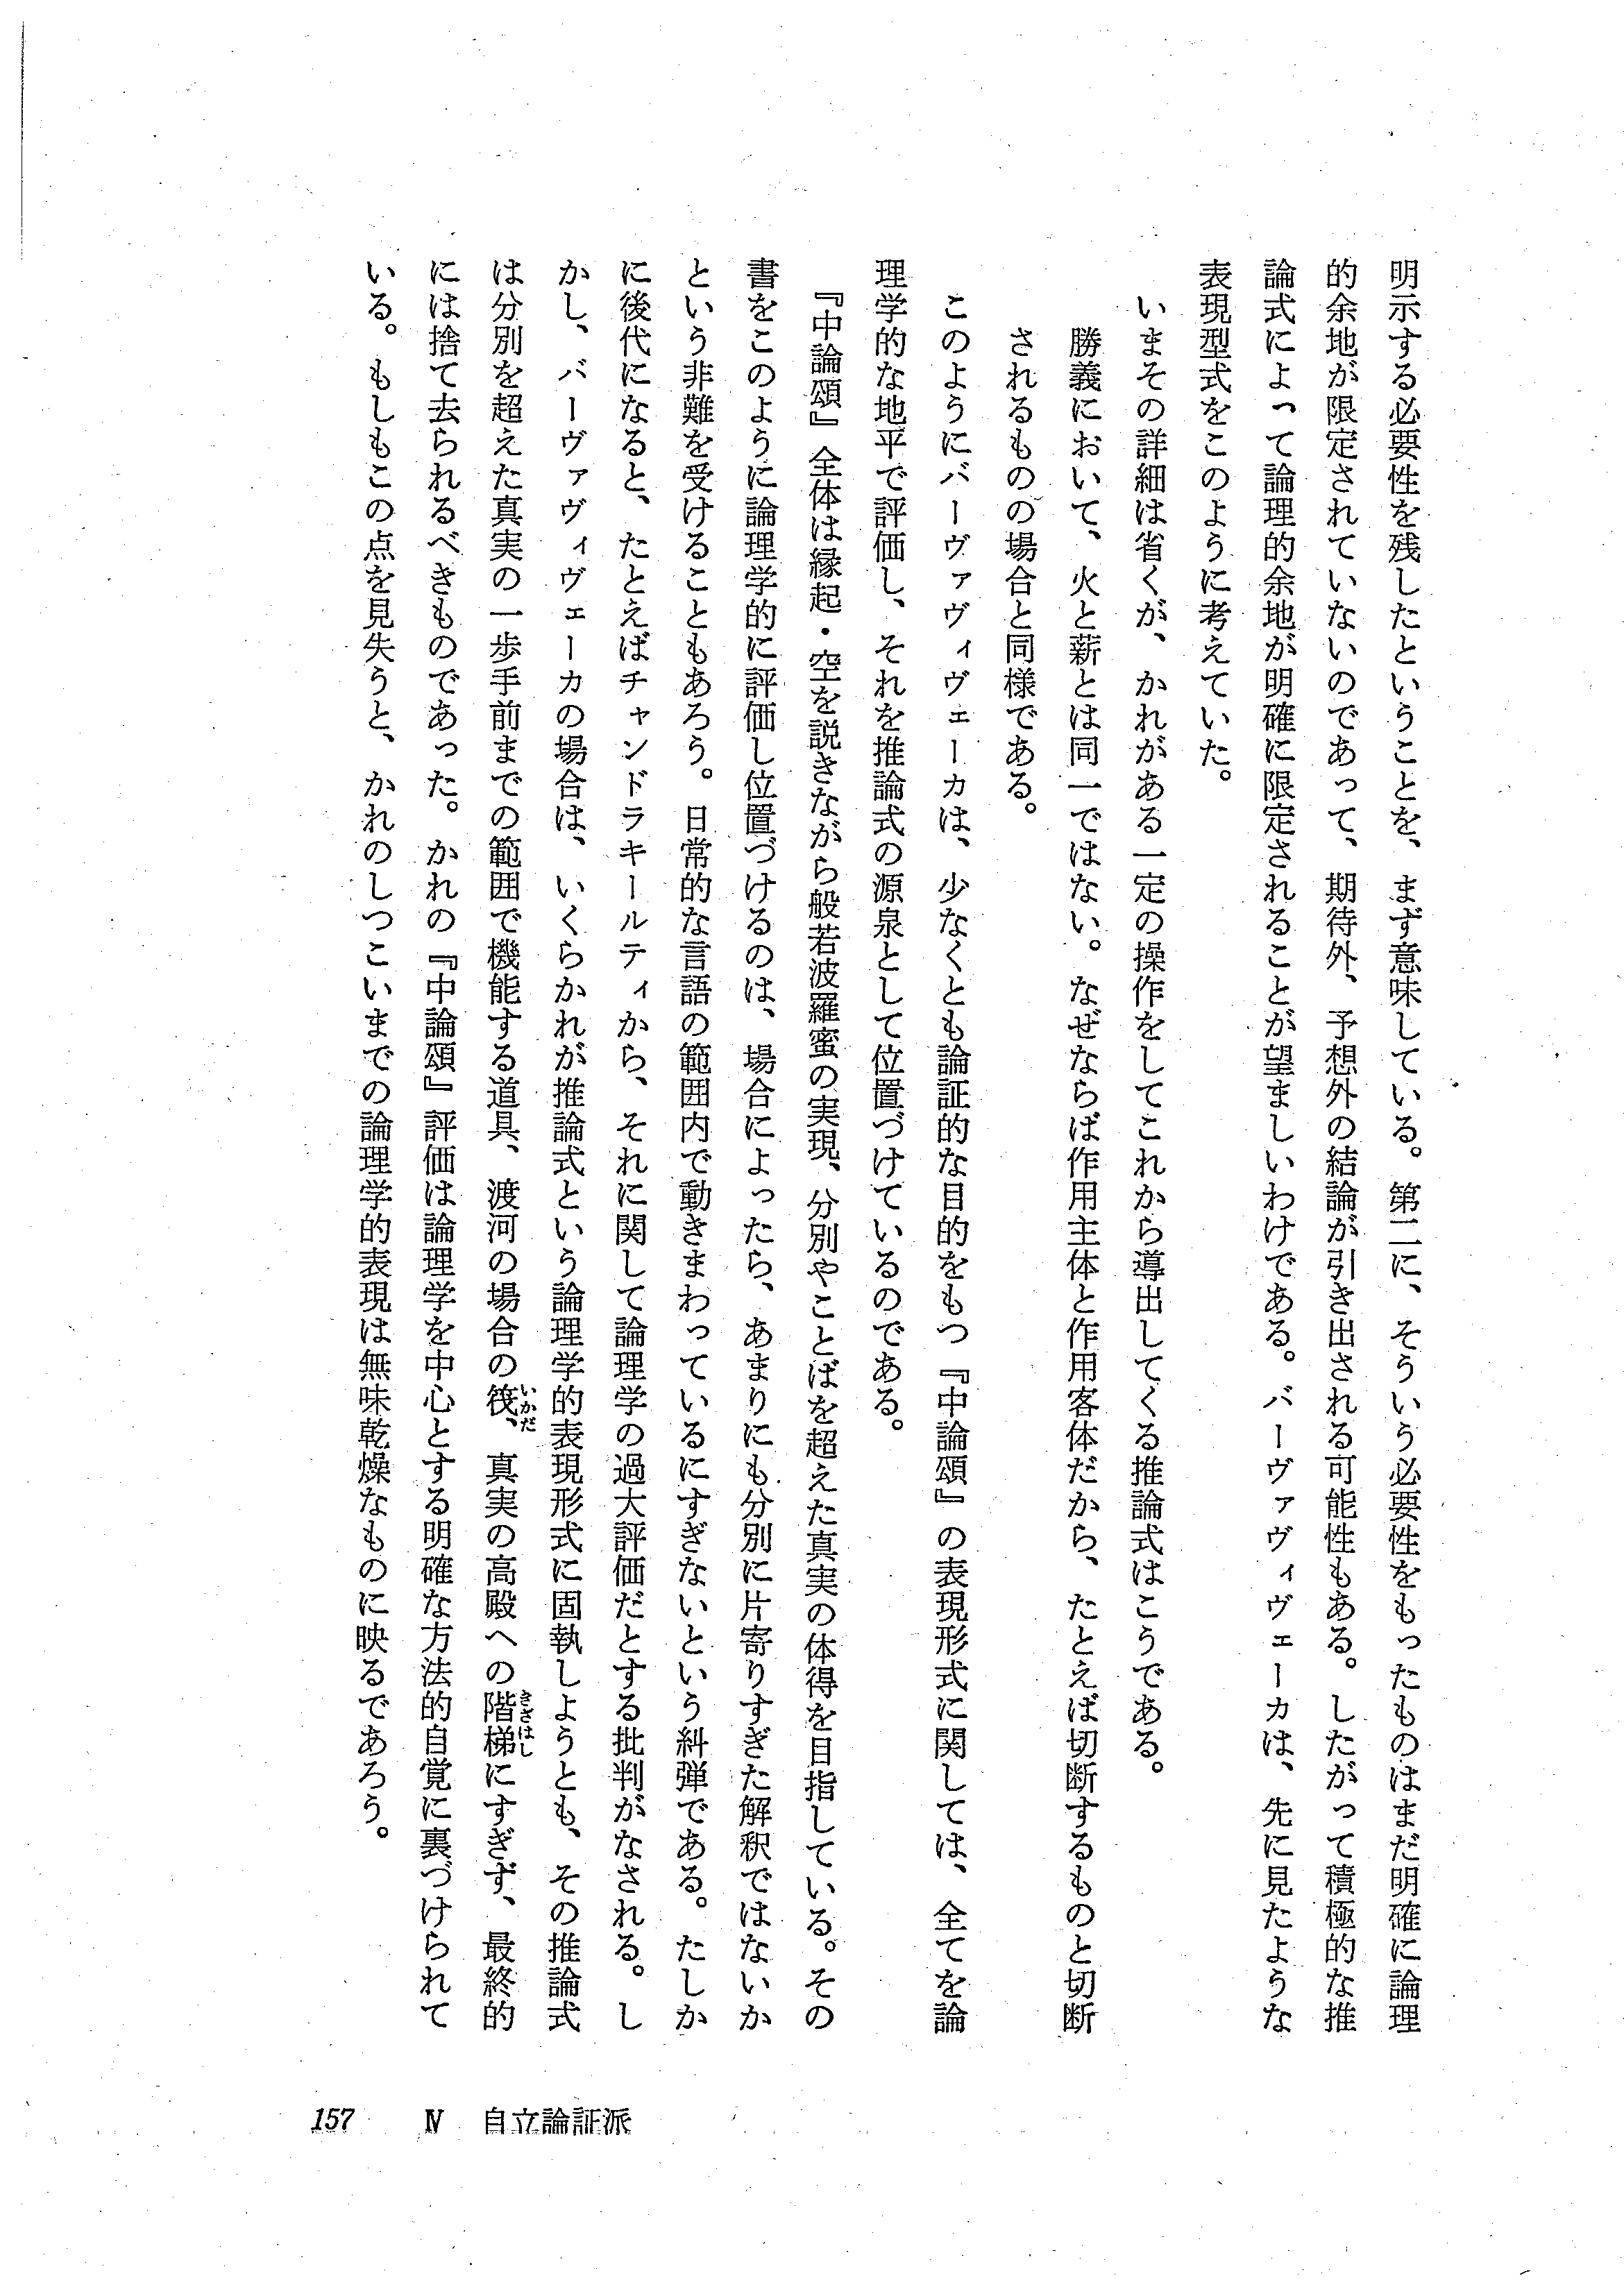 明示する必要性を残したということを、まず意味している。第二に、そういう必要性をもったものはまだ明確に論理
的余地が限定されていないのであって、期待外、予想外の結論が引き出される可能性もある。したがって積極的な推
論式によって論理的余地が明確に限定されることが望ましいわけである。バーヴァヴィヴェーカは、先に見たような
表現型式をこのように考えていた。
いまその詳細は省くが、かれがある一定の操作をしてこれから導出してくる推論式はこうである。
勝義において、火と薪とは同一ではない。なぜならば作用主体と作用客体だから、たとえば切断するものと切断
されるものの場合と同様である。
このようにバーヴァヴィヴェーカは、少なくとも論証的な目的をもつ『中論頌』の表現形式に関しては、全てを論
理学的な地平で評価し、それを推論式の源泉として位置づけているのである。
『中論頌』全体は縁起・空を説きながら般若波羅蜜の実現、分別やことばを超えた真実の体得を目指している。その
書をこのように論理学的に評価し位置づけるのは、場合によったら、あまりにも分別に片寄りすぎた解釈ではないか
という非難を受けることもあろう。日常的な言語の範囲内で動きまわっているにすぎないという糾弾である。たしか
に後代になると、たとえばチャンドラキールティから、それに関して論理学の過大評価だとする批判がなされる。し
かし、バーヴァヴィヴェーカの場合は、いくらかれが推論式という論理学的表現形式に固執しようとも、その推論式
は分別を超えた真実の一歩手前までの範囲で機能する道具、渡河の場合の筏いかだ、真実の高殿への階梯きざはしにすぎず、最終的
には捨て去られるべきものであった。かれの『中論頌』評価は論理学を中心とする明確な方法的自覚に裏づけられて
いる。もしもこの点を見失うと、かれのしつこいまでの論理学的表現は無味乾燥なものに映るであろう。
157 Ⅳ 自立論証派